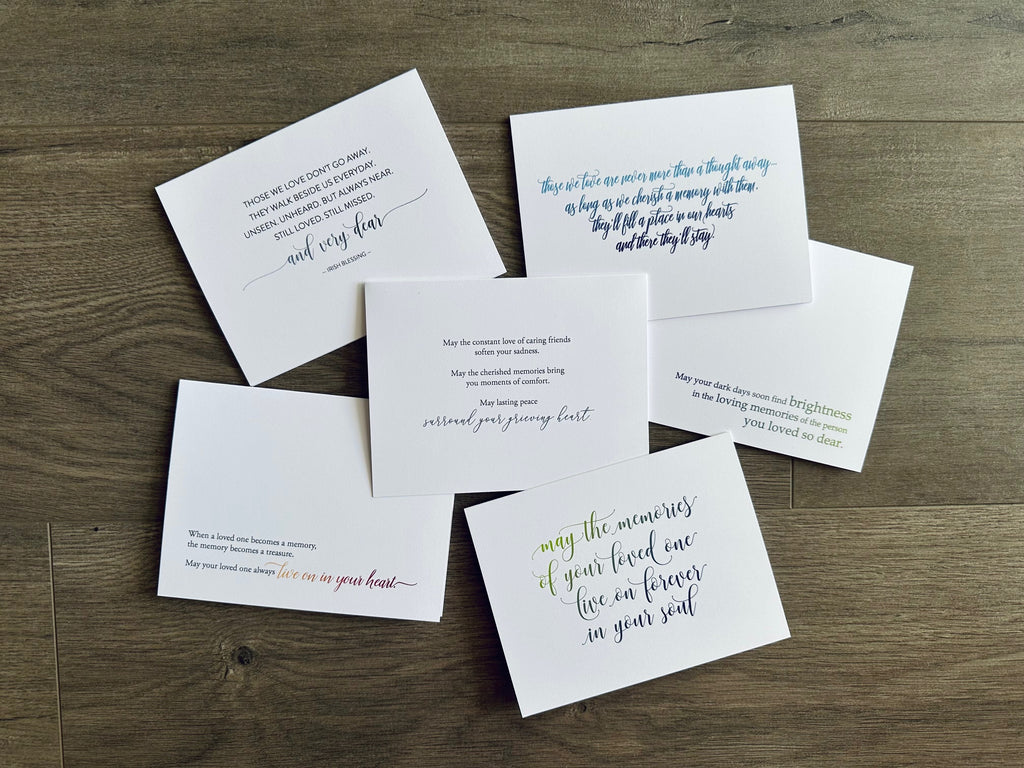 THOSE WE LOVE DON'T GO AWAY,
THEY WALK BESIDE US EVERYDAY,
UNSEEN, UNHEARD, BUT ALWAYS NEAR,
STILL LOVED, STILL MISSED,
and very dear
– IRISH BLESSING –
those we love are never more than a thought away...
as long as we cherish a memory with them,
they'll fill a place in our hearts
and there they'll stay.
May the constant love of caring friends
soften your sadness.
May the cherished memories bring
you moments of comfort.
May lasting peace
surround your grieving heart.
May your dark days soon find brightness
in the loving memories of the person
you loved so dear.
When a loved one becomes a memory,
the memory becomes a treasure.
May your loved one always live on in your heart.
may the memories
of your loved one
live on forever
in your soul